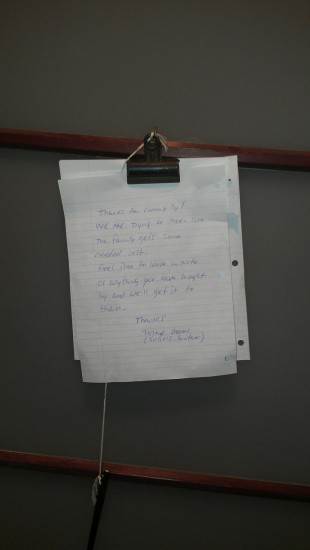 Thanks for coming by!
We are trying to make sure
the family gets some
needed rest.
Feel free to leave a note
or anything you have brought
by and we'll get it to
them.
Thanks!